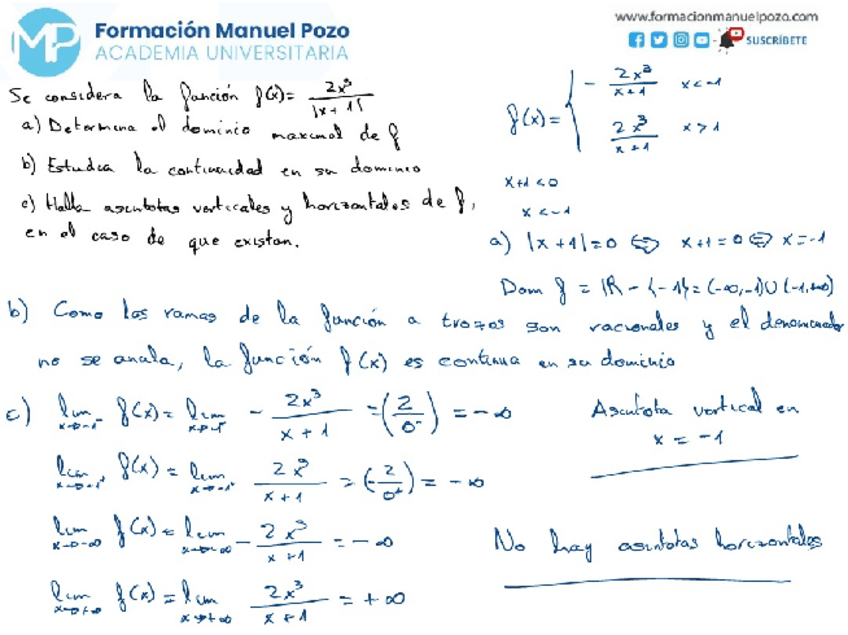 MP Formación Manuel Pozo
ACADEMIA UNIVERSITARIA
www.formacionmanuelpozo.com
SUSCRÍBETE
Se considera la función f(x) = 2x³/|x+1|
a) Determina el dominio maximal de f
b) Estudia la continuidad en su dominio
c) Halla asíntotas verticales y horizontales de f,
en el caso de que existan.
f(x) = { - 2x³/(x+1) x<-1
2x³/(x+1) x>1
x+1<0
x<-1
a) |x+1|=0 ⇔ x+1=0 ⇔ x=-1
Dom f = IR - {-1} = (-∞,-1)U(-1,+∞)
b) Como las ramas de la función a trozos son racionales y el denominador
no se anula, la función f(x) es continua en su dominio
c) lim x→-1⁻ f(x) = lim x→-1⁻ - 2x³/(x+1) = (2/0⁻) = -∞
Asíntota vertical en
x = -1
lim x→-1⁺ f(x) = lim x→-1⁺ 2x³/(x+1) = (-2/0⁺) = -∞
lim x→-∞ f(x) = lim x→-∞ - 2x³/(x+1) = -∞
No hay asíntotas horizontales
lim x→+∞ f(x) = lim x→+∞ 2x³/(x+1) = +∞